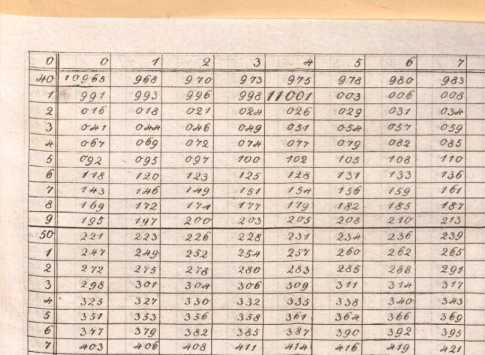 0 0 1 2 3 4 5 6 7
40 10965 968 970 973 975 978 980 983
1 991 993 996 998 11001 003 006 008
2 016 018 021 024 026 029 031 034
3 041 044 046 049 051 054 057 059
4 067 069 072 074 077 079 082 085
5 092 095 097 100 102 105 108 110
6 118 120 123 125 128 131 133 136
7 143 146 149 151 154 156 159 161
8 169 172 174 177 179 182 185 187
9 195 197 200 203 205 208 210 213
50 221 223 226 228 231 234 236 239
1 247 249 252 254 257 260 262 265
2 272 275 278 280 283 285 288 291
3 298 301 304 306 309 311 314 317
4 325 327 330 332 335 338 340 343
5 351 353 356 358 361 364 366 369
6 377 379 382 385 387 390 392 395
7 403 406 408 411 414 416 419 421